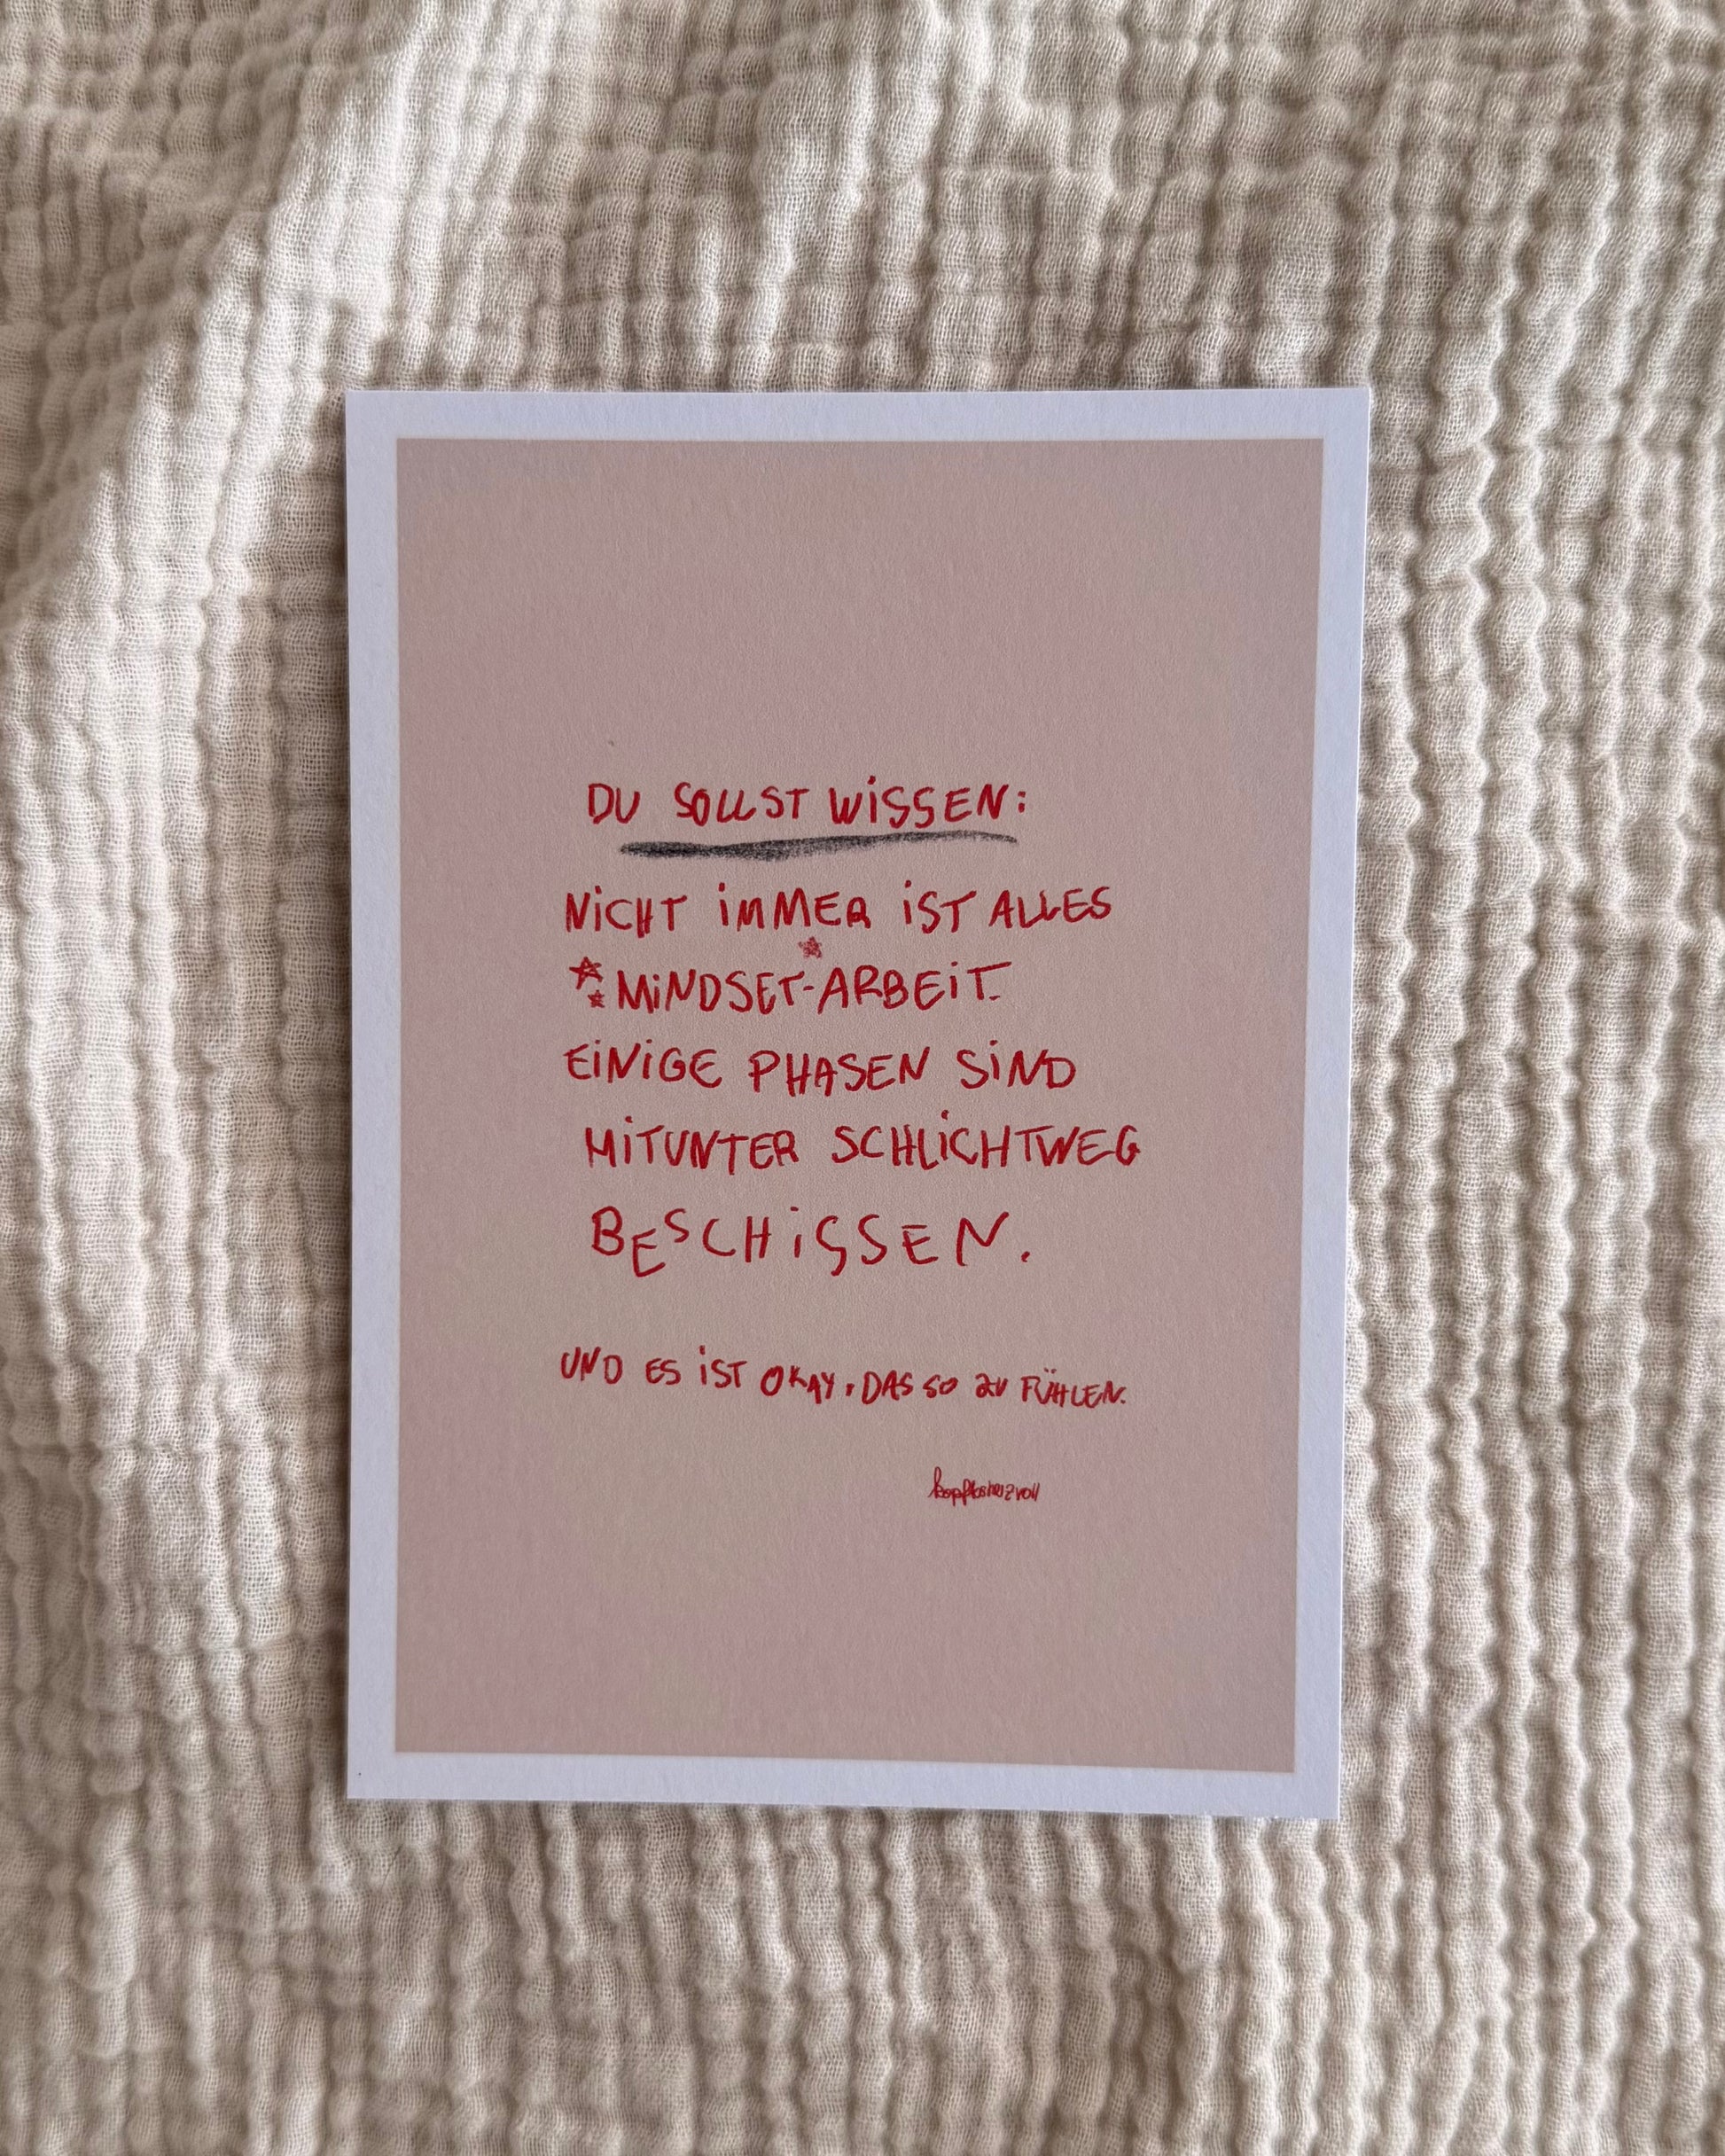 DU SOLLST WiSSEN:
NiCHT iMMER iST ALLES
MiNDSET-ARBEiT.
EiNiGE PHASEN SiND
MiTUNTER SCHLiCHTWEG
BESCHiSSEN.
UND ES iST OKAY, DAS SO ZU FÜHLEN.
kopflosherzvoll